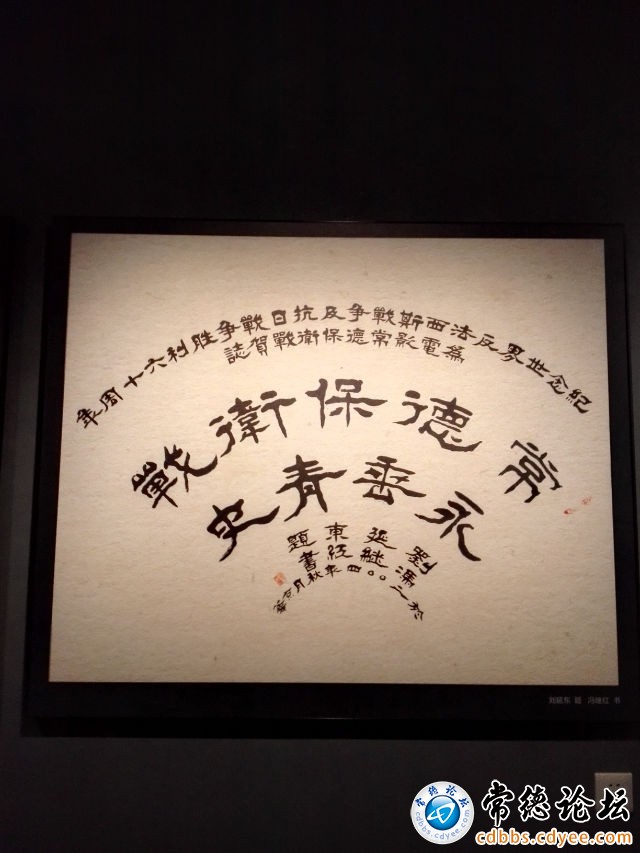 紀念世界反法西斯戰争及抗日戰争胜利六十周年
為電影常德保衛戰賀誌
常德保衛戰
永垂青史
劉延東題
馮継紅書
於二〇〇四年秋月京華
刘延东 题 · 冯继红 书
常德论坛
常德论坛
cdbbs.cdyee.com
cdbbs.cdyee.com